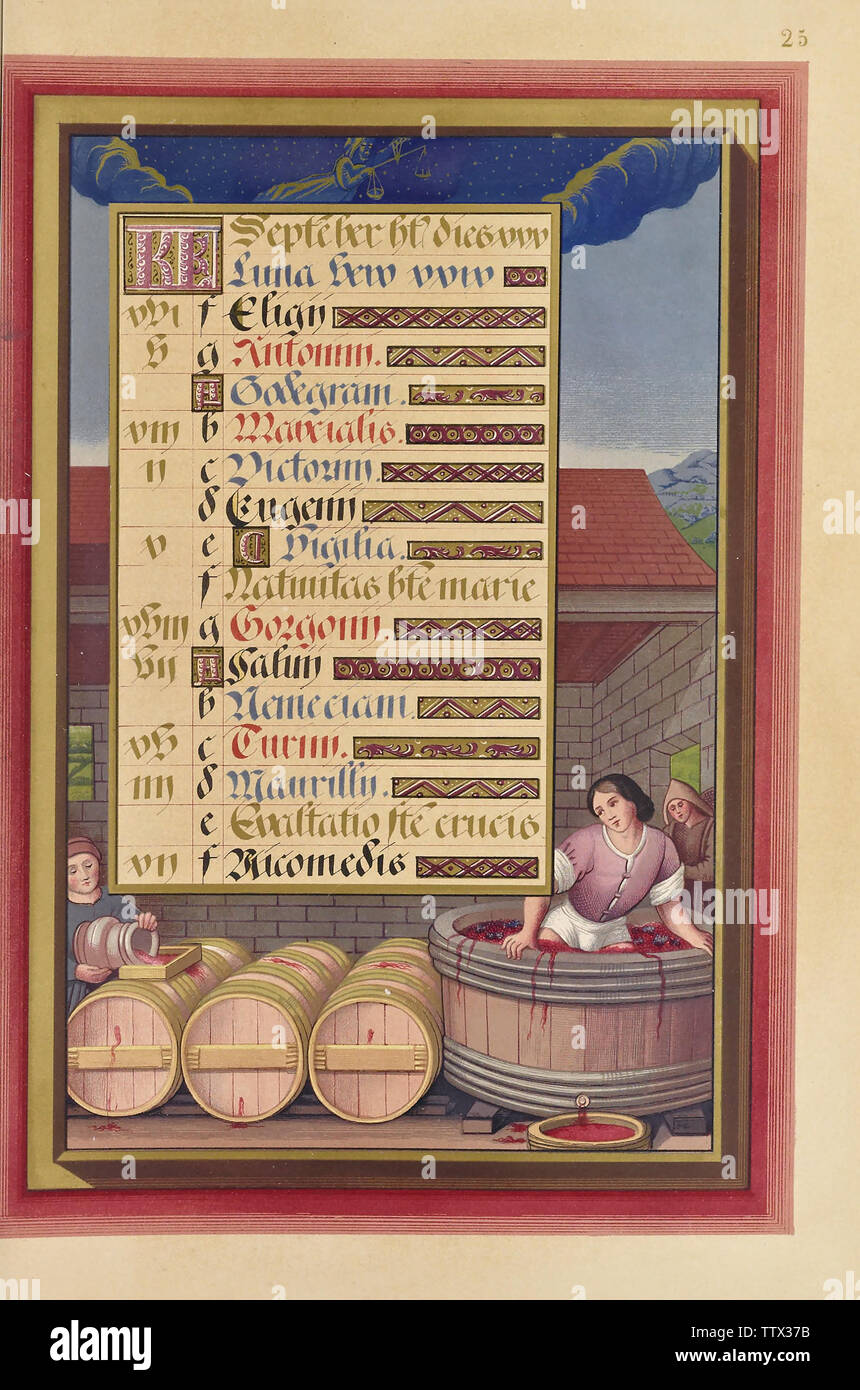 25
KL Septēber ht dies xxx
Luna vero xxix
xvi f Eligij
v g Antonini.
A Godegram.
xiii b Marcialis.
ii c Victorini.
d Eugenij
x e Vigilia.
f Nativitas bte marie
xviii g Gorgonij.
vii A Salvij
b Nemeciani.
xv c Turini.
iiii d Maurilij.
e Exaltatio ste crucis
xii f Nicomedis
alamy
Image ID: TTX37B
www.alamy.com